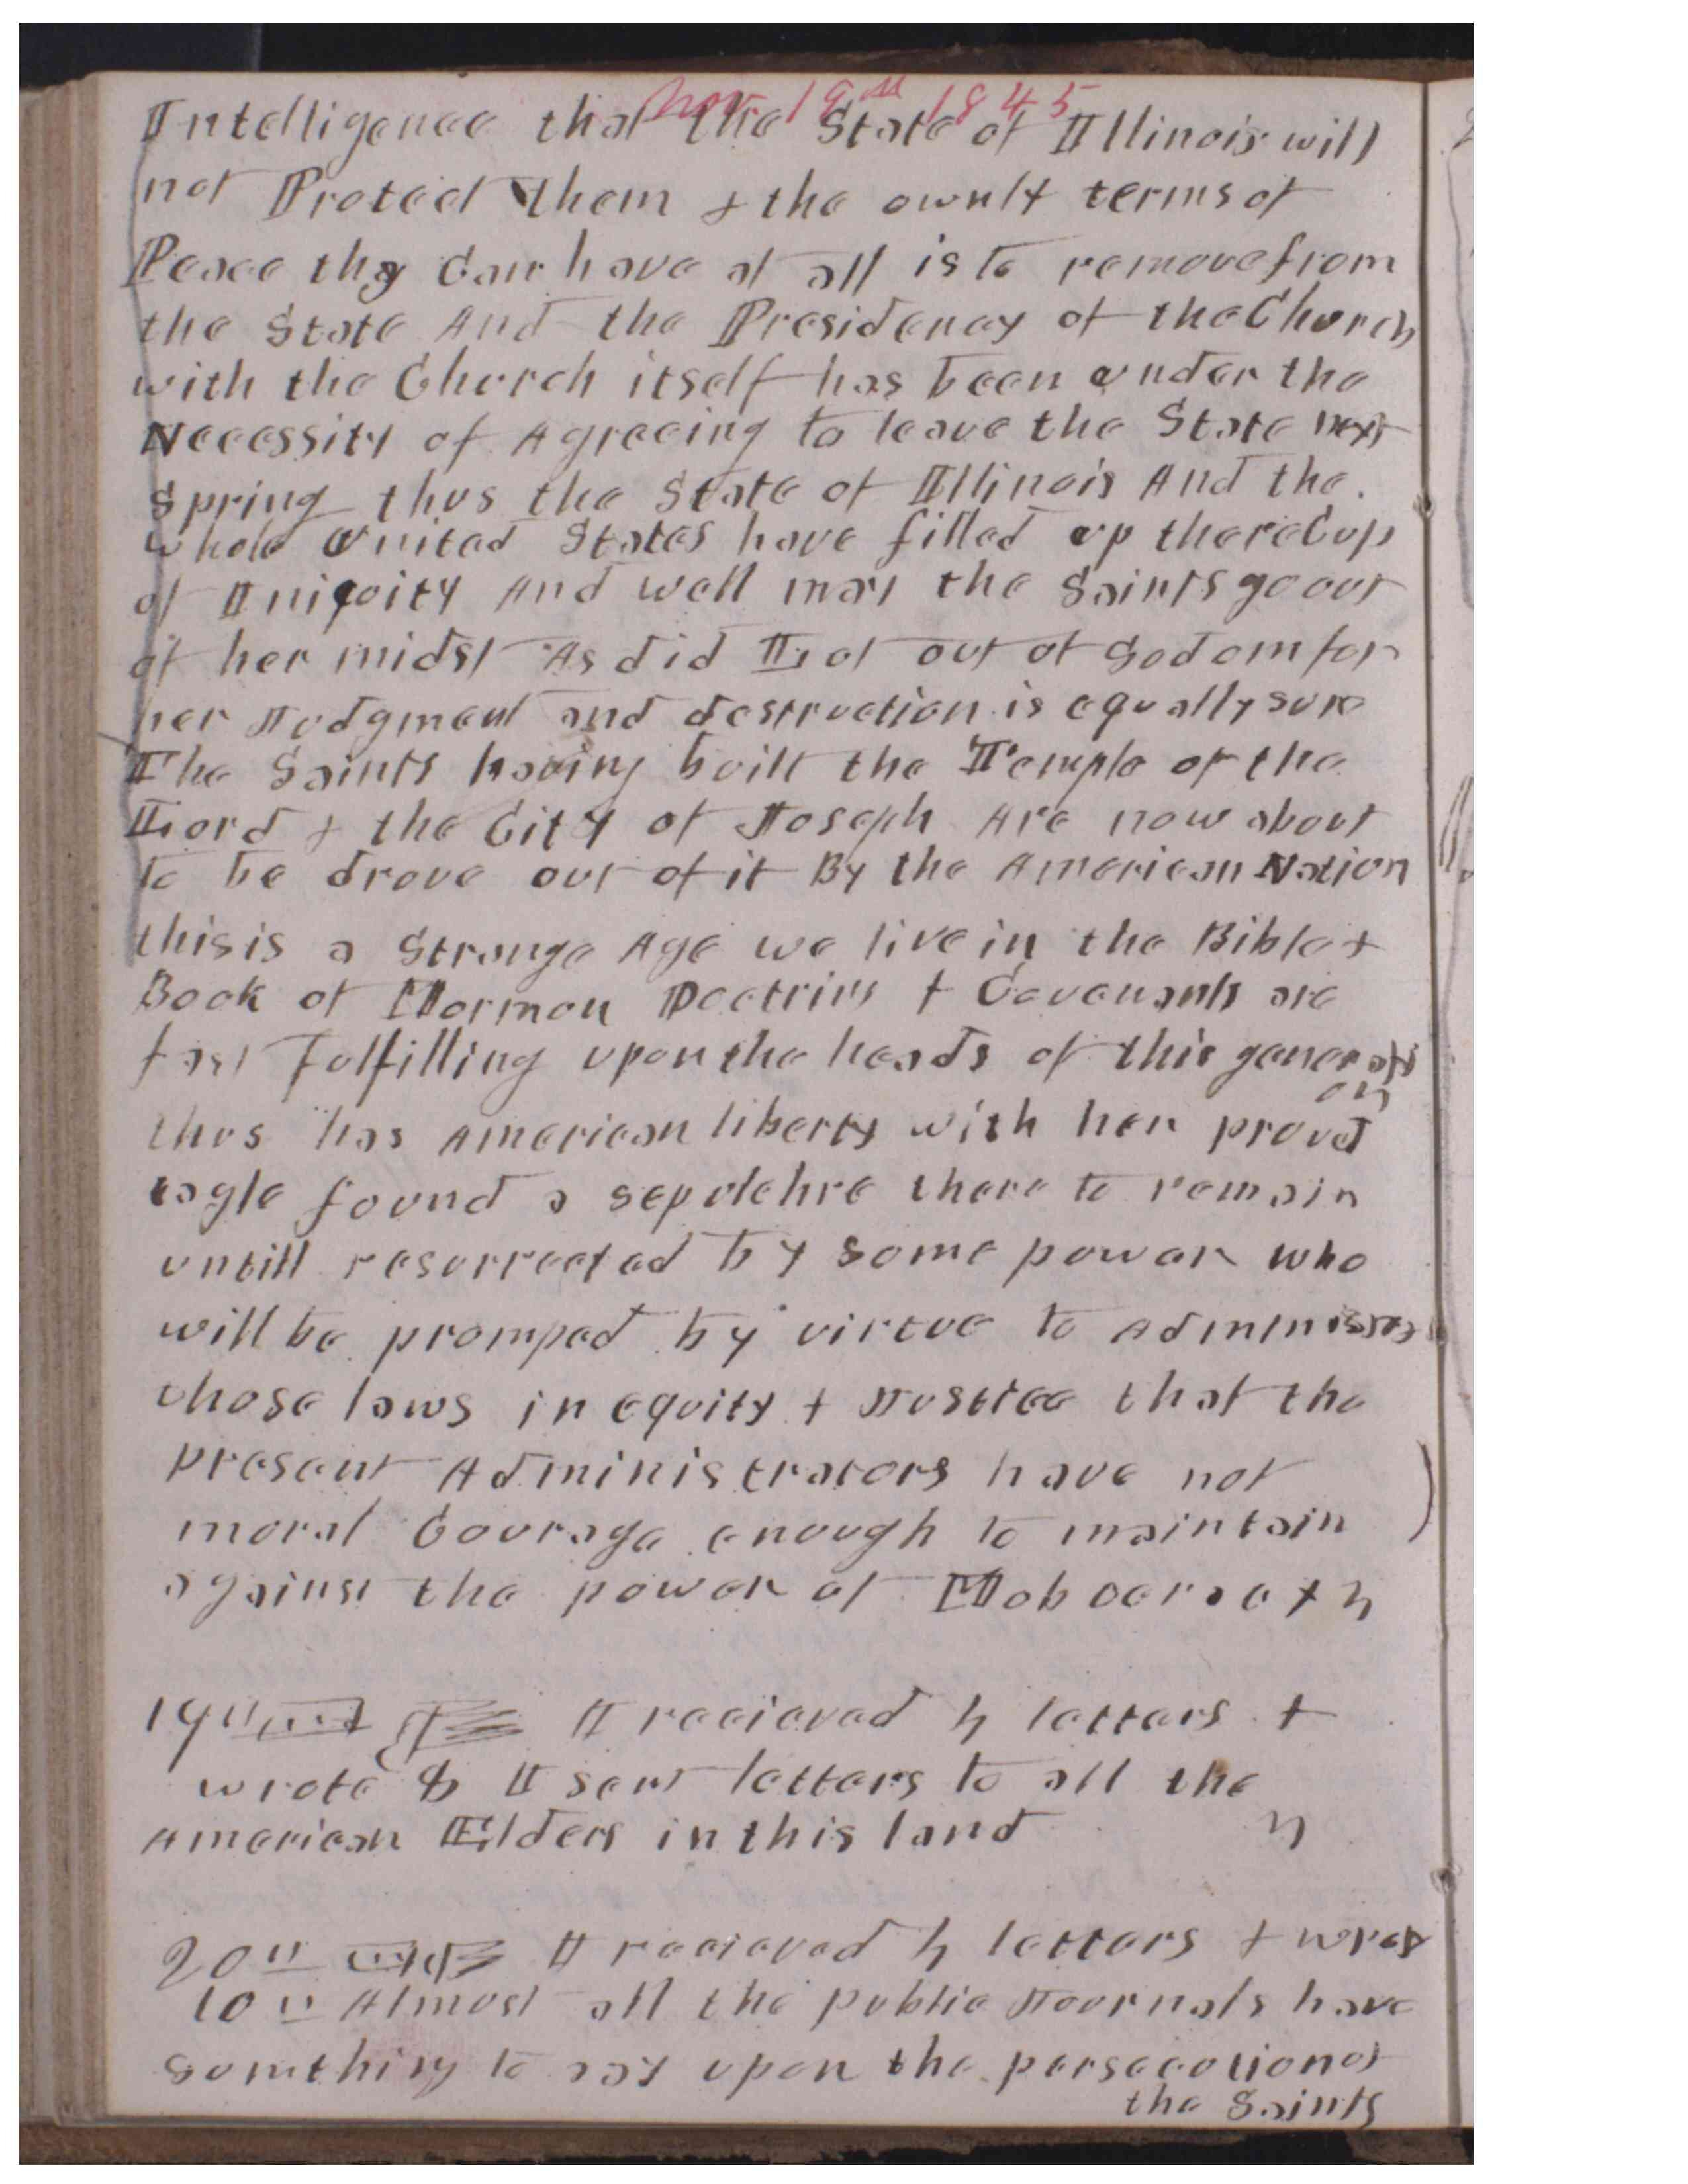 Nov 19th 1845
Intelligence that the State of Illinois will
not Protect them & the ownly terms of
Peace thy Can have at all is to remove from
the State And the Presidency of the Church
with the Church itself has been under the
Necessity of Agreeing to leave the State next
Spring thus the State of Illinois And the
whole United States have filled up there Cup
of Iniquity And well may the Saints go out
of her midst As did Lot out of Sodom for
her Judgment and destruction is equally sure
The Saints having built the Temple of the
Lord & the City of Joseph Are now about
to be drove out of it By the American Nation
this is a Strange Age we live in the Bible &
Book of Mormon Doctrins & Covenants are
fast fulfilling upon the heads of this generati
on
thus has American liberty with her proud
eagle found a sepulchre there to remain
untill resurrected by some power who
will beromped by virtue to Adminnister
those laws in equity & Justice that the
present Administrators have not
moral Courage enough to maintain
against the power of Mobocracy
19 I recieved letters &
wrote 8 I sent letters to all the
American Elders in this land
20 I recieved letters & wrote
10 Almost all the public Journals have
sumthing to say upon the persecution of
the Saints